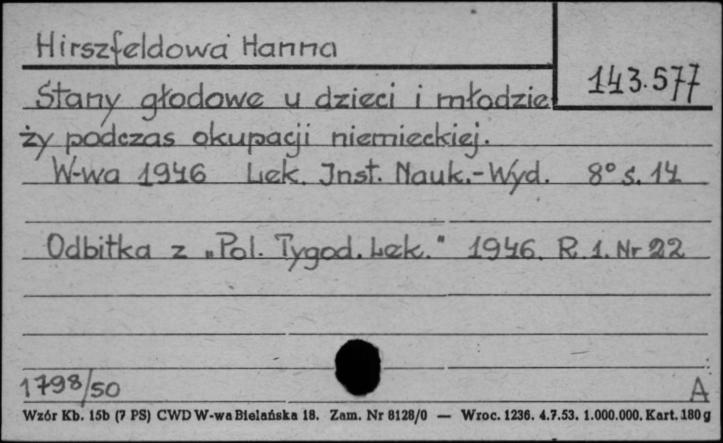 Hirszfeldowa Hanna
143.577
Stany głodowe u dzieci i młodzie
ży podczas okupacji niemieckiej.
W-wa 1946 Lek. Inst. Nauk.-Wyd. 8° s. 14
Odbitka z „Pol. Tygod. Lek." 1946. R. 1. Nr 22
1798/50
A
Wzór Kb. 15b (7 PS) CWD W-wa Bielańska 18. Zam. Nr 8128/0 — Wroc. 1236. 4.7.53. 1.000.000. Kart. 180 g